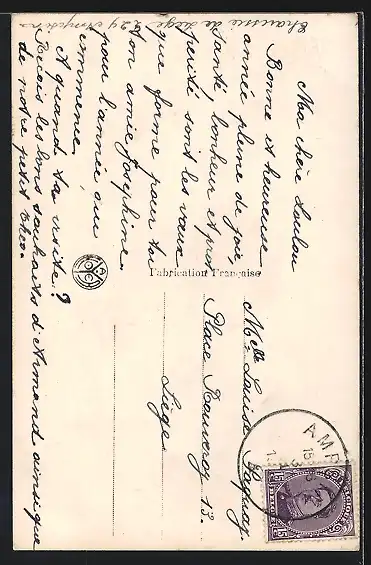 Ma chère Loulou
Bonne et heureuse
année pleine de joie,
santé, bonheur et pros
périté sont les vœux
que forme pour toi
ton amie Joséphine.
pour l'année qui
commence.
A quand ta visite?
Reçois les bons souhaits d'Armand ainsi que
de notre petit
Chaussée de Liège 24
Fabrication Française
Melle Louise
Place 13.
Liège
AMP
15
BELGIQUE
15